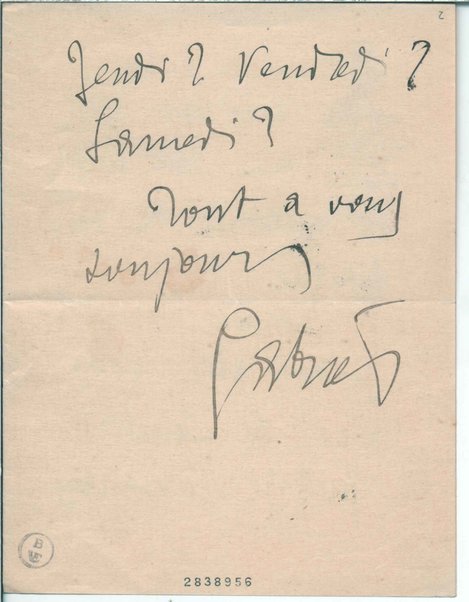 2
Jeudi? Vendredi?
Samedi?
Tout a vous
toujours
Gabriel
B
2838956